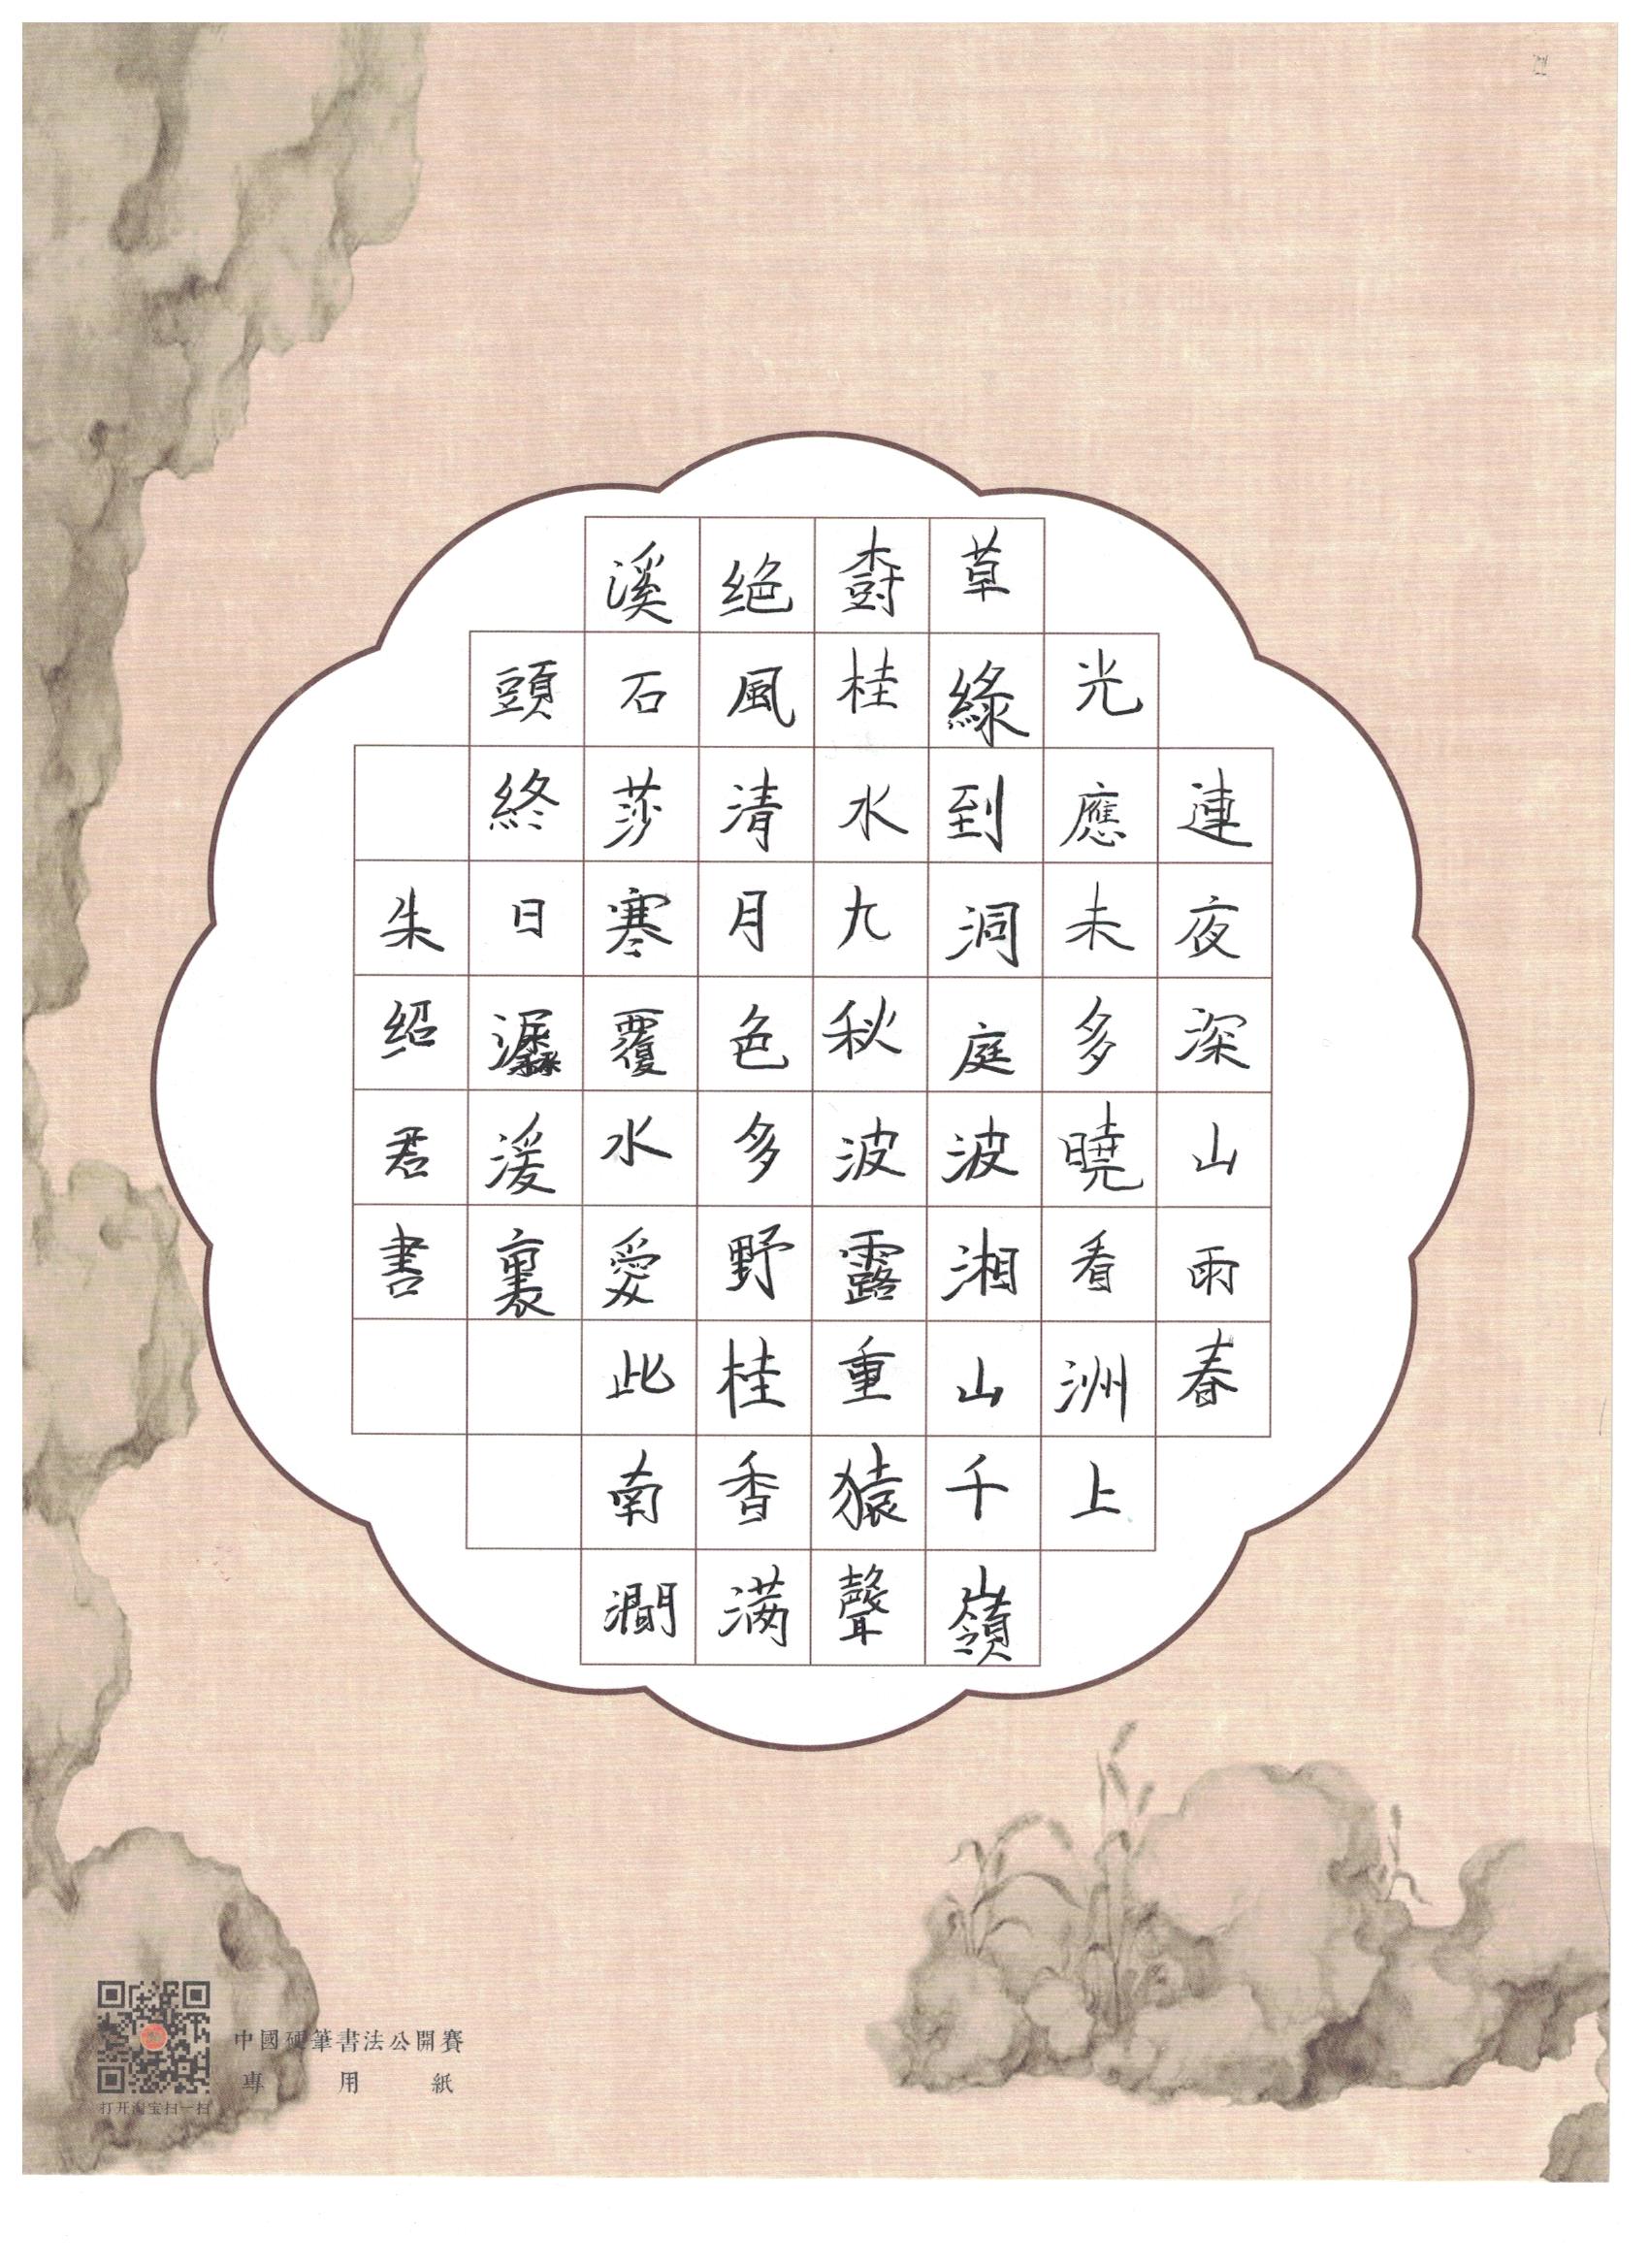 連夜深山雨春
光應未多曉看洲上
草綠到洞庭波湘山千嶺
樹桂水九秋波露重猿聲
绝風清月色多野桂香满
溪石莎寒覆水愛此南澗
頭終日潺湲裏
朱绍君書
中國硬筆書法公開賽
專用紙
打开淘宝扫一扫